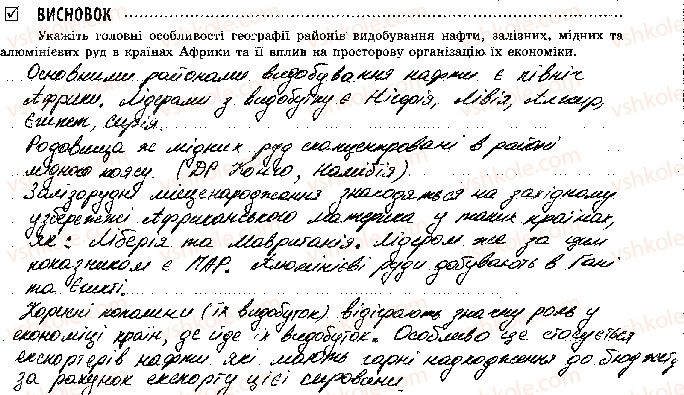 ВИСНОВОК
Укажіть головні особливості географії районів видобування нафти, залізних, мідних та
алюмінієвих руд в країнах Африки та її вплив на просторову організацію їх економіки.
Основними районами видобування нафти є північ
Африки. Лідерами з видобутку є Нігерія, Лівія, Алжир,
Єгипет, Сирія.
Родовища же мідних руд сконцентровані в районі
мідного поясу. (ДР Конго, Намібія).
Залізорудні місценародження знаходяться на західному
узбережжі Африканського материка у таких країнах,
як: Ліберія та Мавританія. Лідером же за цим
показником є ПАР. Алюмінієві руди добувають в Гані
та Єгипті.
Корисні копалини (їх видобуток) відіграють значну роль у
економіці країн, де йде їх видобуток. Особливо це стосується
експортерів нафти, які мають гарні надходження до бюджету
за рахунок експорту цієї сировини.
vshkole.com